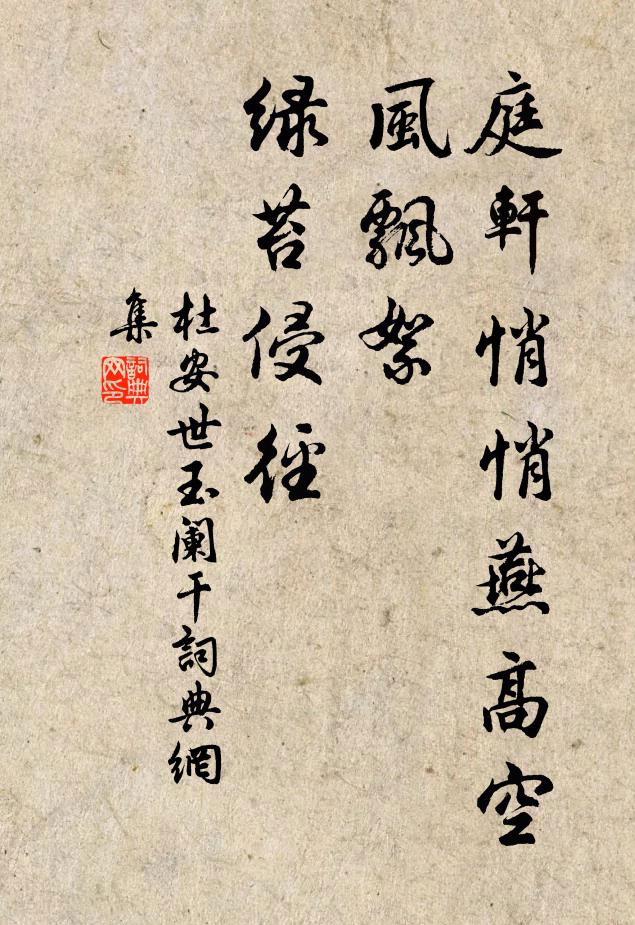 庭軒悄悄燕高空
風飄絮
緑苔侵徑
杜安世玉阑干詞典網
集
詞典
网印